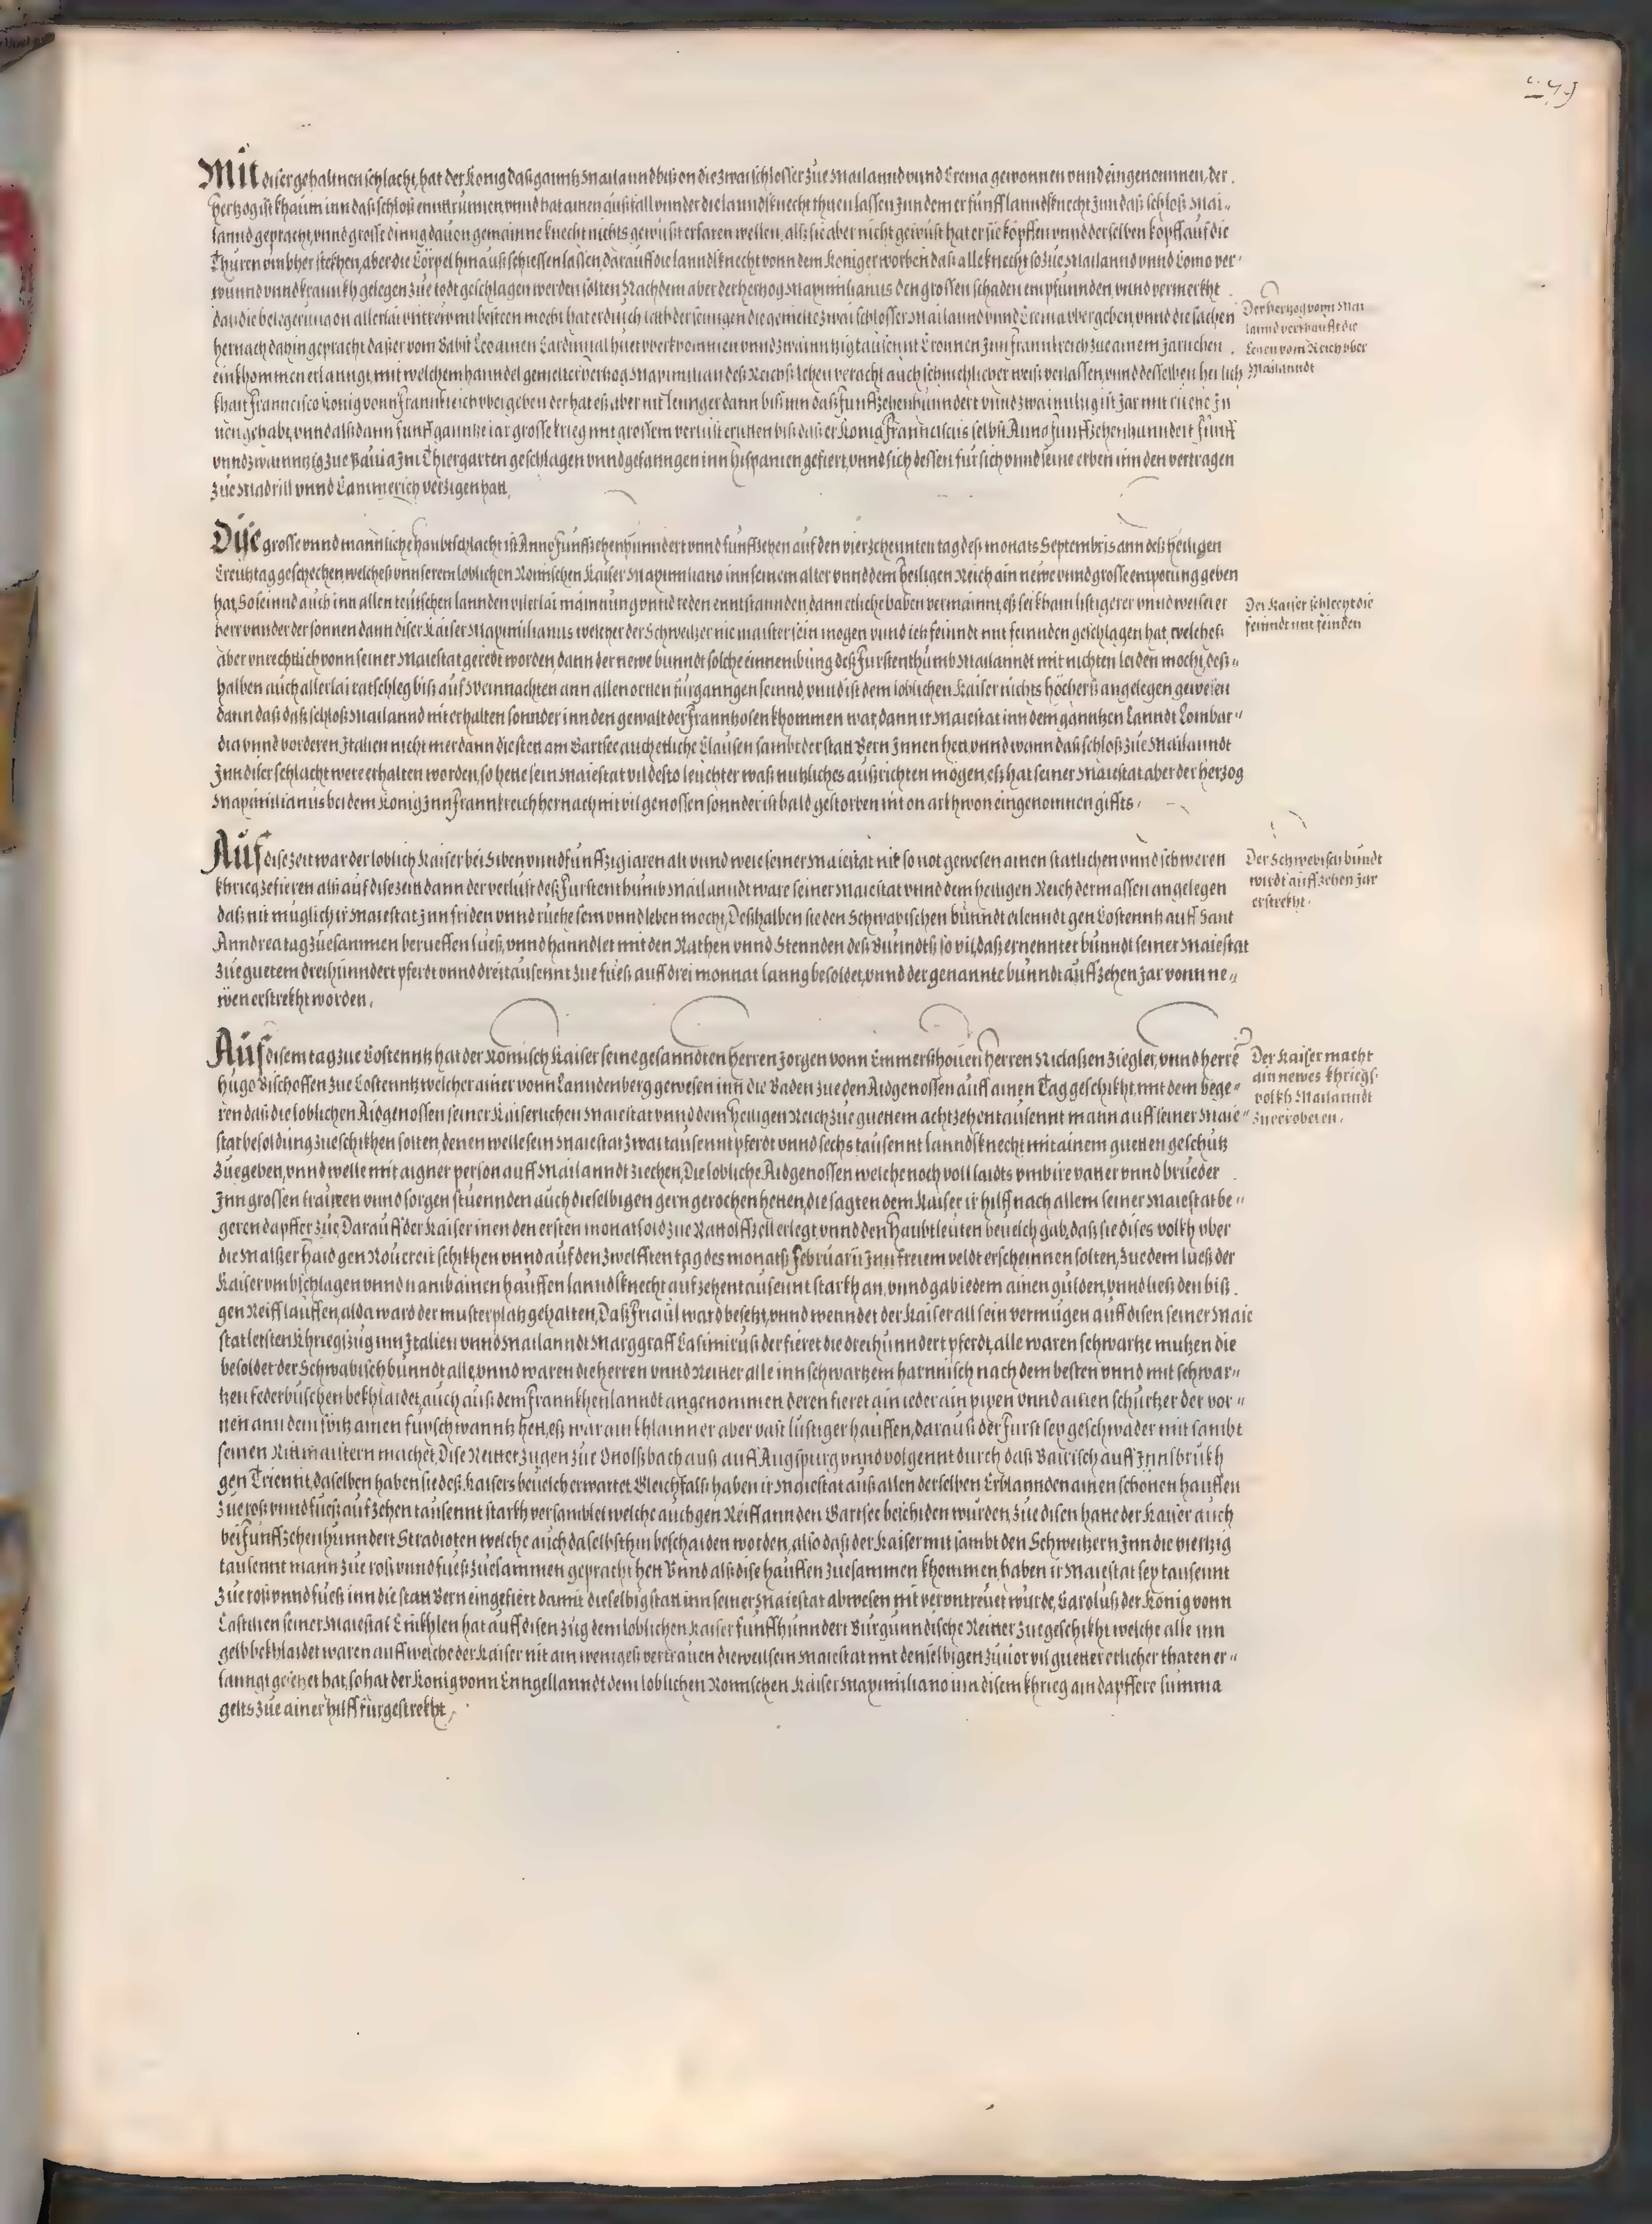 Mit diser gehaltnen schlacht, hat der König daß ganntz Mailannd biß on die zwai schlosser zue Mailannd vnnd Crema gewonnen vnnd eingenommen, der
hertzog ist khaum inn daß schloß enntrunnen, vnnd hat ainen außfall vnnder die lanndßknecht thuen lassen Inn dem er fünff lanndßknecht Inn daß schloß Mai-
lannd gepracht, vnnd grosse ding dauon gemainne knecht nichts gewüst erfaren wellen, alß sie aber nicht gewüst hat er sie köpffen vnnd derselben köpff auf die
Thüren vmbher stekhen, aber die Cörpel hinauß schiessen lassen, darauff die lanndßknecht vonn dem König erworben daß alle knecht so zue Mailannd vnnd Como ver-
wunnd vnnd krannkh gelegen zue todt geschlagen werden solten, Nach dem aber der hertzog Maximilianus den grossen schaden empfunnden, vnnd vermerkht
das die belegerung on allerlai vntrew nit besteen mocht hat er durch die gemelte zwai schlosser Mailannd vnnd Crema vbergeben, vnnd die sachen
hernach dahin gepracht daß er vom Babst Leo ainen Cardinnal huet vberkommen vnnd zwainntzig tausennt Cronnen Inn Frannkreich zue ainem Jarlichen
einkhommen erlanngt, mit welchem hanndel gemelter hertzog Maximilian deß Reichß lehen veracht auch schmehlicher weiß verlassen, vnnd desselben herlich
khait Francisco König vonn Frannkreich vbergeben der hat eß aber nit lennger dann biß inn daß funffzehenhunndert vnnd Jar mit ruehe Jn
nen gehabt, vnnd alß dann funff gantze iar grosse krieg mit grossem verlust erlitten biß daß er König Franciscus selbst Anno funffzehenhunndert fünff
vnnd zwainntzig zue Pauia Im Thiergarten geschlagen vnnd gefanngen inn Hispanien gefiert, vnnd sich dessen für sich vnnd seine erben inn den vertragen
zue Madrill vnnd Cammerich verzigen hatt,
Der hertzog vonn Mai
lannd verkaufft die
Lehen vom Reich vber
Mailanndt
Dise grosse vnnd mannliche haubtschlacht ist Anno funffzehenhunndert vnnd funffzehen auf den vierzehennten tag deß monats Septembris ann deß heiligen
Creutz tag geschechen welcheß vnnserem loblichen Romischen Kaiser Maximiliano inn seinem alter vnnd dem heiligen Reich ain newe vnnd grosse emporung geben
hat, So seinnd auch inn allen teutschen lannden vilerlai mainnung vnnd reden enntstannden, dann etliche haben vermainnt, eß sei khain listigerer vnnd weiserer
herr vnnder der sonnen dann diser Kaiser Maximilianus welcher der Schweitzer nie maister sein mogen vnnd ietz feinndt mit feinnden geschlagen hat, welcheß
aber vnrechtlich vonn seiner Maiestat geredt worden, dann der newe bunndt solche einnembung deß Furstenthumb Mailanndt mit nichten leiden mocht, deß-
halben auch allerlai ratschleg biß auf Weinnachten ann allen orten fürganngen seinnd, vnnd ist dem loblichen Kaiser nichts höchers angelegen gewesen
dann daß daß schloß Mailannd nit erhalten sonnder inn den gewalt der Frannzosen khommen war, dann ir Maiestat inn dem ganntzen Lanndt Lombar-
dia vnnd vorderen Italien nicht mer dann die sten am Gartsee auch etliche Clausen sambt der statt Bern Innen hett, vnnd wann daß schloß zue Mailanndt
Inn diser schlacht were erhalten worden, so hette sein Maiestat vil desto leuchter waß nutzliches außrichten mögen, eß hat seiner Maiestat aber der hertzog
Maximilianus bei dem König Inn Frannkreich hernach nit vil genossen sonnder ist bald gestorben nit on arkhwon eingenomnen giffts.
Der Kaiser schlecht die
feinndt mit feinden
Auf dise zeit war der loblich Kaiser bei siben vnnd funffzig iaren alt vnnd were seiner Maiestat nit so not gewesen ainen statlichen vnnd schweren
khrieg zefieren alß auf dise zeit dann der verlust deß Furstenthumb Mailanndt ware seiner Maiestat vnnd dem heiligen Reich dermassen angelegen
daß nit müglich ir Maiestat Inn friden vnnd ruehe sein vnnd leben mocht, Deßhalben sie den Schwäbischen bünndt eilenndt gen Costenntz auff Sant
Anndrea tag zuesammen berueffen lueß, vnnd hanndlet mit den Rathen vnnd Stennden deß Bunndtß so vil, daß ernennter bünndt seiner Maiestat
zue guetem dreihünndert pferdt vnnd dreitausennt zue fueß auff drei monnat lanng besoldet, vnnd der genannte bunndt auff zehen Jar vonn ne-
wen erstrekht worden.
Der Schwebisch bundt
wirdt auff zehen Jar
erstrekht.
Auf disem tag zue Costenntz hat der Romisch Kaiser seine gesanndten herren Jorgen vonn Emmerßhouen herren Niclaßen Ziegler, vnnd herrē
Hugo Bischoffen zue Costenntz welcher ainer vonn Lanndenberg gewesen inn die Baden zue den Aidgenossen auff ainen Tag geschikht, mit dem bege-
ren daß die loblichen Aidgenossen seiner Kaiserlichen Maiestat vnnd dem heiligen Reich zue guettem achtzehentausennt mann auff seiner Maie-
stat besoldung zueschikhen solten, denen welle sein Maiestat zwai tausennt pferdt vnnd sechs tausennt lanndßknecht mit ainem guetten geschütz
zuegeben, vnnd welle mit aigner person auff Mailanndt ziechen, Die lobliche Aidgenossen welche noch voll laidts vmb ire vatter vnnd brueder
Inn grossen trauren vnnd sorgen stuennden auch dieselbigen gern gerochen hetten, die sagten dem Kaiser ir hilff nach allem seiner Maiestat be-
geren dapffer zue, Darauff der Kaiser inen den ersten monatsold zue Ratolffzell erlegt, vnnd den haubtleuten beuelch gab, daß sie dises volkh vber
die Malßer Haid gen Rouereit schikhen vnnd auf den zwelfften tag des monats Februarii Inn freiem veldt erscheinnen solten, zue dem lueß der
Kaiser vmbschlagen vnnd nam bainen hauffen lanndßknecht auf zehentausennt starkh an, vnnd gab iedem ainen gulden, vnnd ließ den biß
gen Reiff lauffen, alda ward der musterplatz gehalten, Daß Friaul ward besetzt, vnnd wenndet der Kaiser all sein vermügen auff disen seiner Maie
stat letsten Khriegßzug inn Italien vnnd Mailanndt Marggraff Casimiruß der fieret die dreihünndert pferdt, alle waren schwartze mutzen die
besoldet der Schwäbisch bünndt alle, vnnd waren die herren vnnd Reitter alle inn schwartzem harnnisch nach dem besten vnnd mit schwar-
tzen federbuschen bekhlaidet, auch auß dem Frannkhenlanndt angenommen deren fieret ain ieder ain pixen vnnd ainen schurtzer der vor-
nen ann dem spitz ainen fuxschwanntz hett, eß war ain khlainner aber vast lustiger hauffen, darauß der Fürst sex geschwader mit sambt
seinen Rittmaistern machet, Dise Reitter zugen zue Onolßbach auß auff Augspurg vnnd volgennt durch daß Bairisch auff Innsbrukh
gen Trienntt, daselben haben sie deß Kaisers beuelch erwartet Gleichfalß haben ir Maiestat auß allen derselben Erblannden ainen schönen hauffen
zue roß vnnd fueß auf zehen tausennt starkh versamblet welche auch gen Reiff ann den Gartsee beschiden wurden, zue disen hatte der Kaiser auch
bei funffzehenhünndert Stradioten welche auch daselbsthin beschaiden worden, also daß der Kaiser mit sambt den Schweitzern Inn die viertzig
tausennt mann zue roß vnnd fueß zuesammen gepracht hett Vnnd alß dise hauffen zuesammen khommen, haben ir Maiestat sex tausennt
zue roß vnnd fueß inn die statt Bern eingefiert damit dieselbig statt inn seiner Maiestat abwesen nit veruntreuet wurde, Caroluß der König vonn
Castilien seiner Maiestat Enikhlen hat auff disen zug dem loblichen Kaiser funffhunndert Burgunndische Reitter zuegeschikht welche alle inn
gelb bekhlaidet waren auff welche der Kaiser nit am wenigeß vertrauen dieweil sein Maiestat mit denselbigen zuuor vil guetter etlicher thaten er-
lanngt gesetzet hat, so hat der König vonn Enngellanndt dem loblichen Romischen Kaiser Maximiliano inn disem khrieg ain dapffere summa
gelts zue ainer hilff fürgestrekht.
Der Kaiser macht
ain newes khriegs-
volkh Mailanndt
zuerobeten.